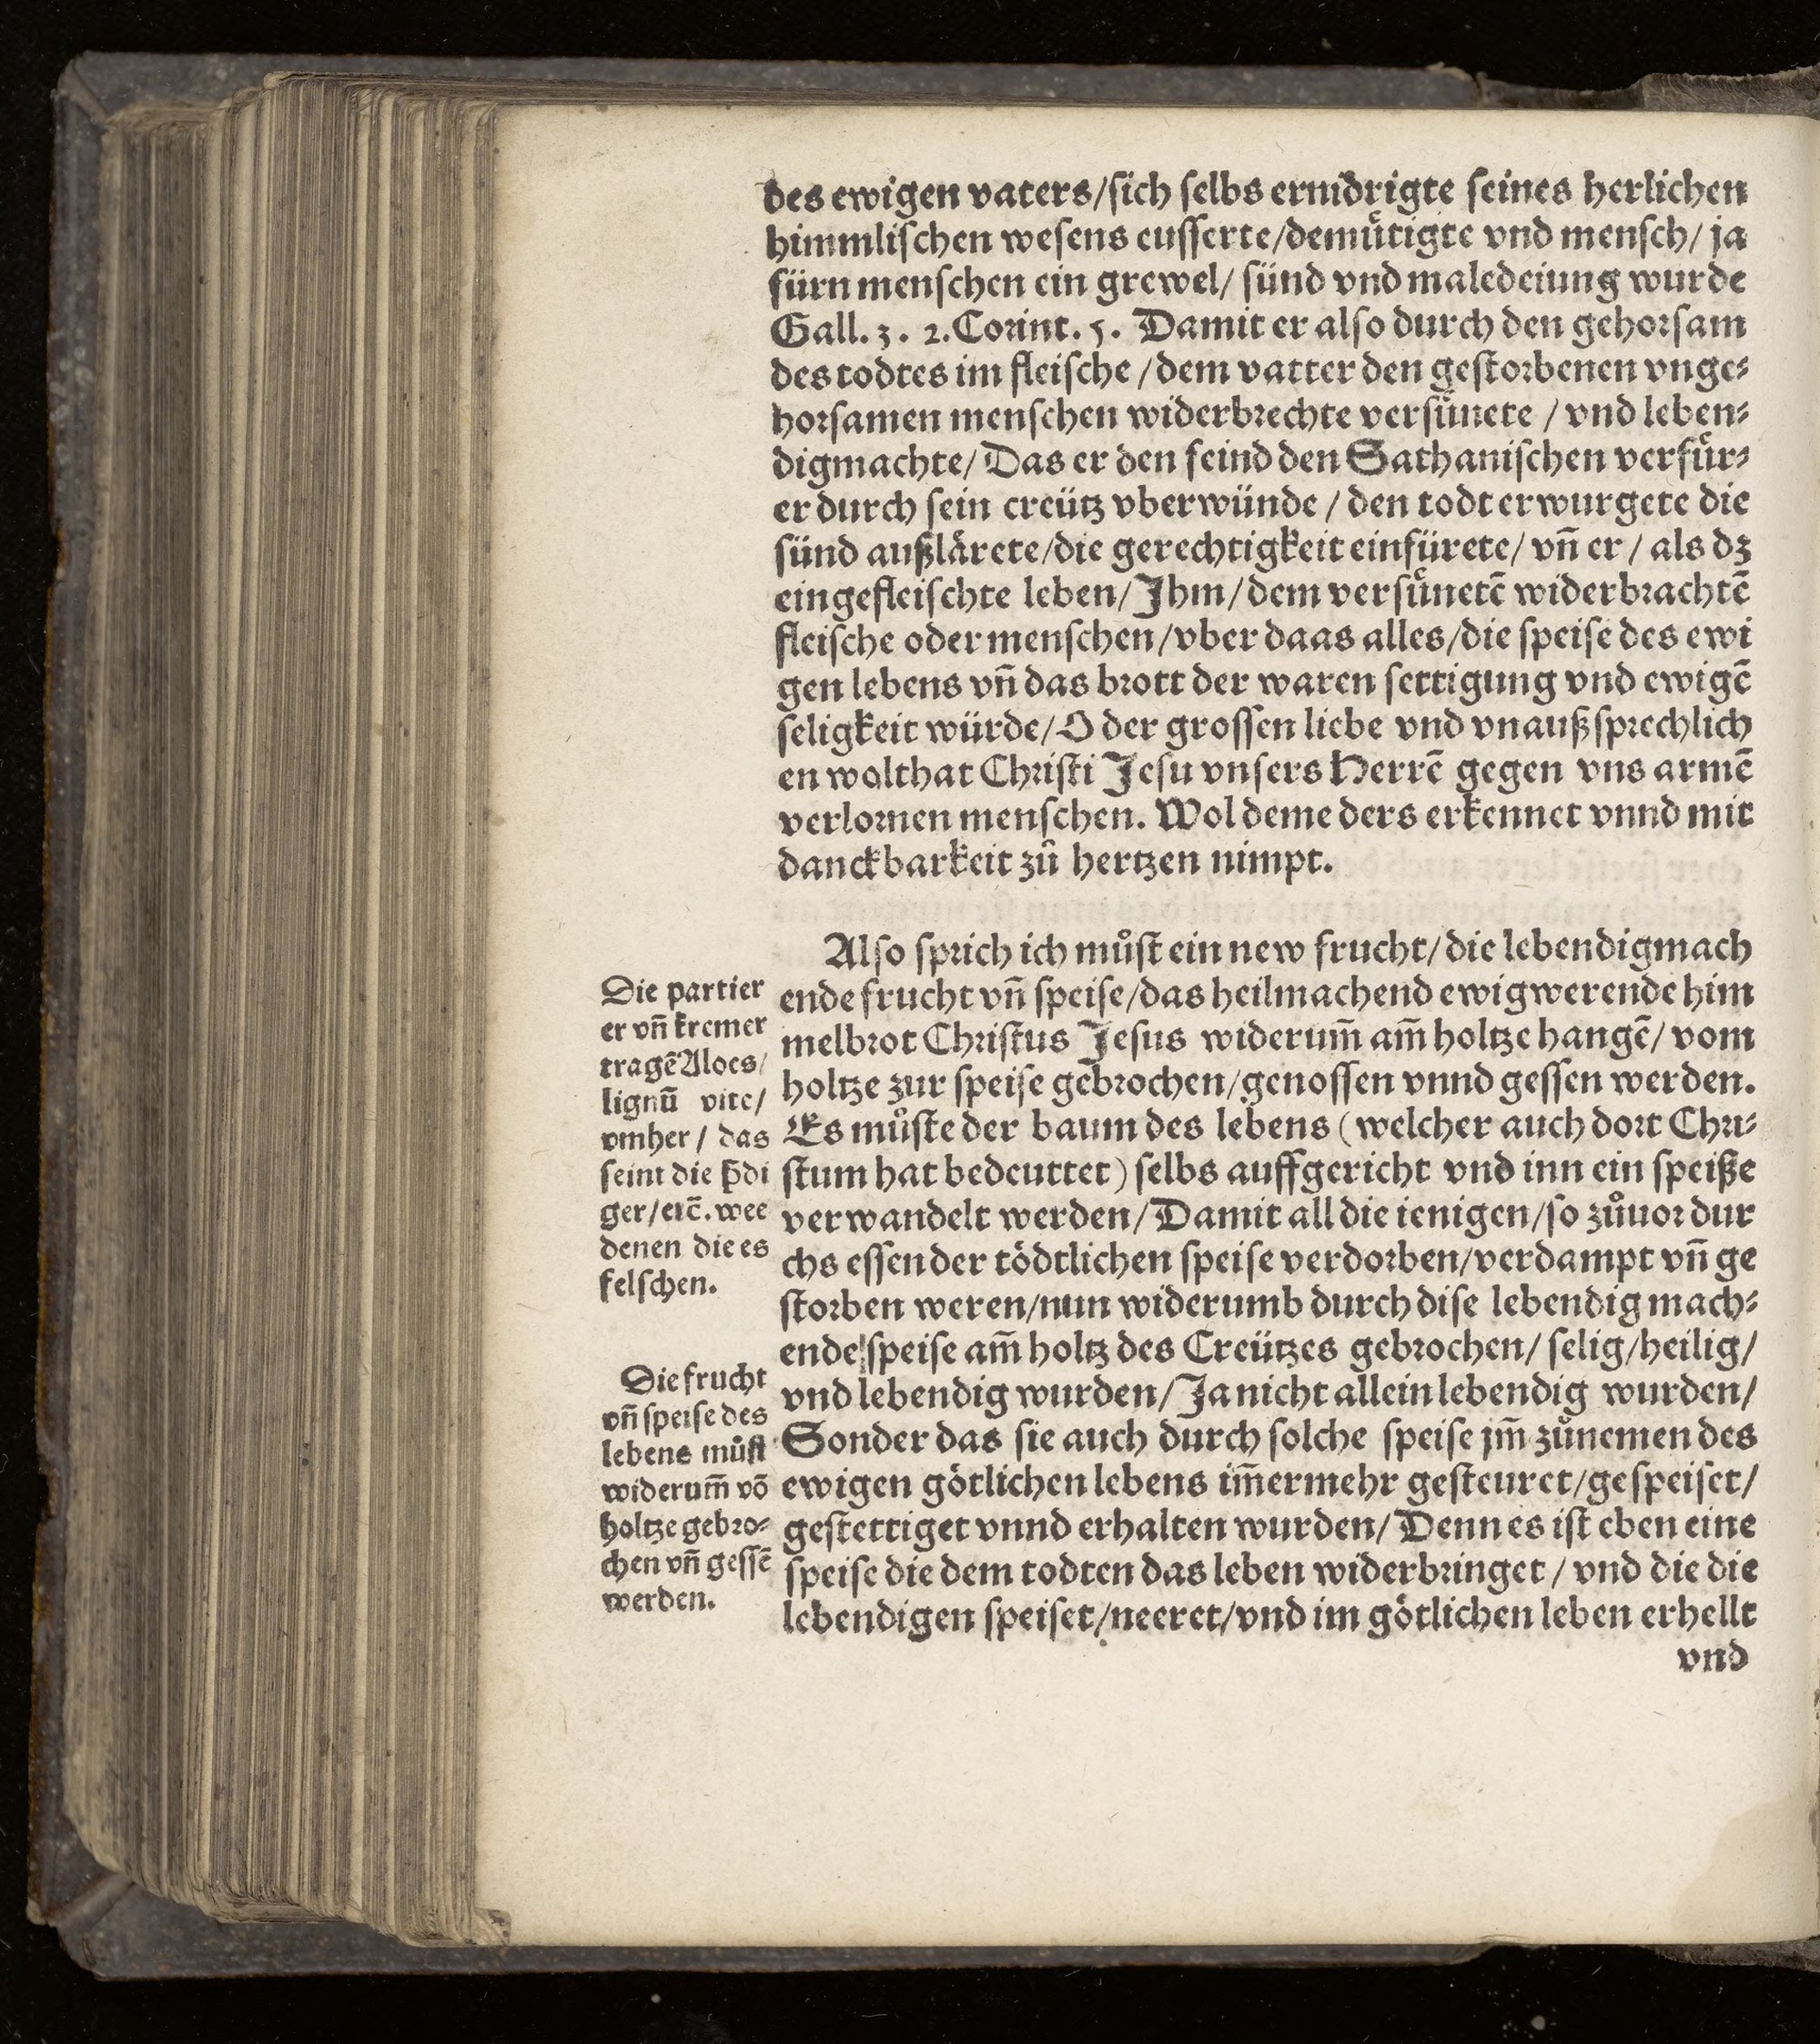 des ewigen vaters/sich selbs ernidrigte seines herlichen
himmlischen wesens eusserte/demuͤtigte vnd mensch/ ja
fürn menschen ein grewel/ sünd vnd maledeiung wurde
Gall. 3. 2. Corint. 5. Damit er also durch den gehorsam
des todtes im fleische /dem vatter den gestorbenen vnge⸗
horsamen menschen widerbrechte versuͤnete / vnd leben⸗
digmachte/ Das er den feind den Sathanischen verfuͤr⸗
er durch sein creütz vberwünde / den todt erwurgete die
sünd außlaͤrete/die gerechtigkeit einfürete/ vn̄ er / als dz
eingefleischte leben/ Ihm/dem versuͤnetē widerbrachtē
fleische oder menschen/vber daas alles/die speise des ewi
gen lebens vn̄ das brott der waren settigung vnd ewigē
seligkeit würde/O der grossen liebe vnd vnaußsprechlich
en wolthat Christi Jesu vnsers Herrē gegen vns armē
verlornen menschen. Wol deme ders erkennet vnnd mit
danckbarkeit zů hertzen nimpt.
Also sprich ich můst ein new frucht/die lebendigmach
ende frucht vn̄ speise/das heilmachend ewigwerende him
melbrot Christus Jesus widerum̄ am̄ holtze hangē/ vom
holtze zur speise gebrochen/genossen vnnd gessen werden.
Es můste der baum des lebens (welcher auch dort Chri⸗
stum hat bedeuttet) selbs auffgericht vnd inn ein speiße
verwandelt werden/Damit all die ienigen/so zůuor dur
chs essen der toͤdtlichen speise verdorben/verdampt vn̄ ge
storben weren/nun widerumb durch dise lebendig mach⸗
ende speise am̄ holtz des Creützes gebrochen/ selig/heilig/
vnd lebendig wurden/Ja nicht allein lebendig wurden/
Sonder das sie auch durch solche speise jm̄ zůnemen des
ewigen goͤtlichen lebens im̄ermehr gesteuret/gespeiset/
gestettiget vnnd erhalten wurden/Denn es ist eben eine
speise die dem todten das leben widerbringet / vnd die die
lebendigen speiset/neeret/vnd im goͤtlichen leben erhellt
vnd
Die partier
er vn̄ kremer
tragē Aloes/
lignū vite/
vmher / das
seint die p̄di
ger/etc̄. wee
denen die es
felschen.
Die frucht
vn̄ speise des
lebens můst
widerum̄ vō
holtze gebro⸗
chen vn̄ gessē
werden.